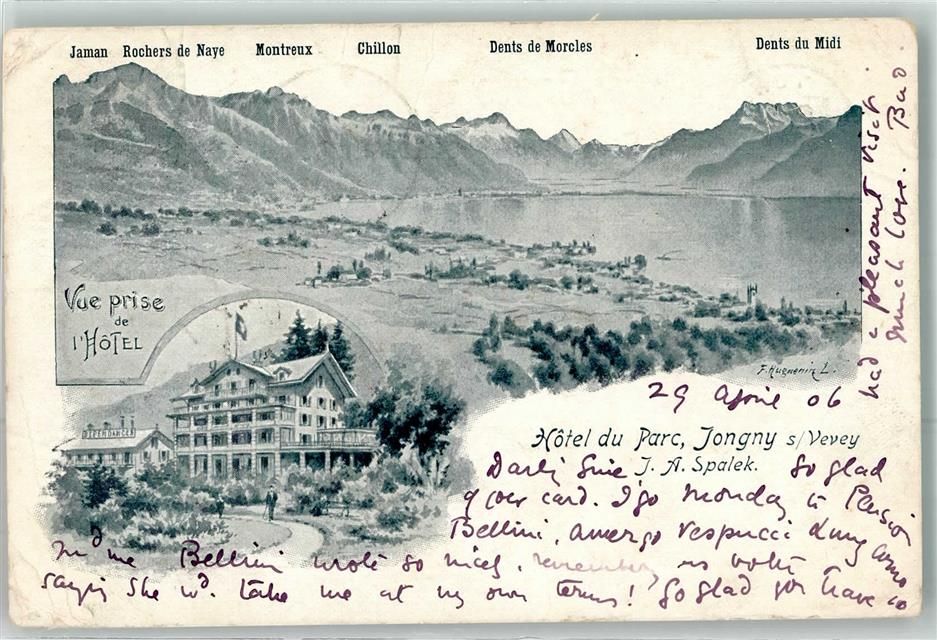 Jaman Rochers de Naye Montreux Chillon Dents de Morcles Dents du Midi
Vue prise
de
l'HÔTEL
DEPENDANCE
F. Huguenin L.
29 April 06
Hôtel du Parc, Jongny s/Vevey
J. A. Spalek.
So glad
of your card. I go Monday to Pension
Bellini, Amerigo Vespucci
Mme Bellini wrote so nicely, remembering us both
saying she wd. take me at my own terms! So glad you have
had a pleasant visit
much love.